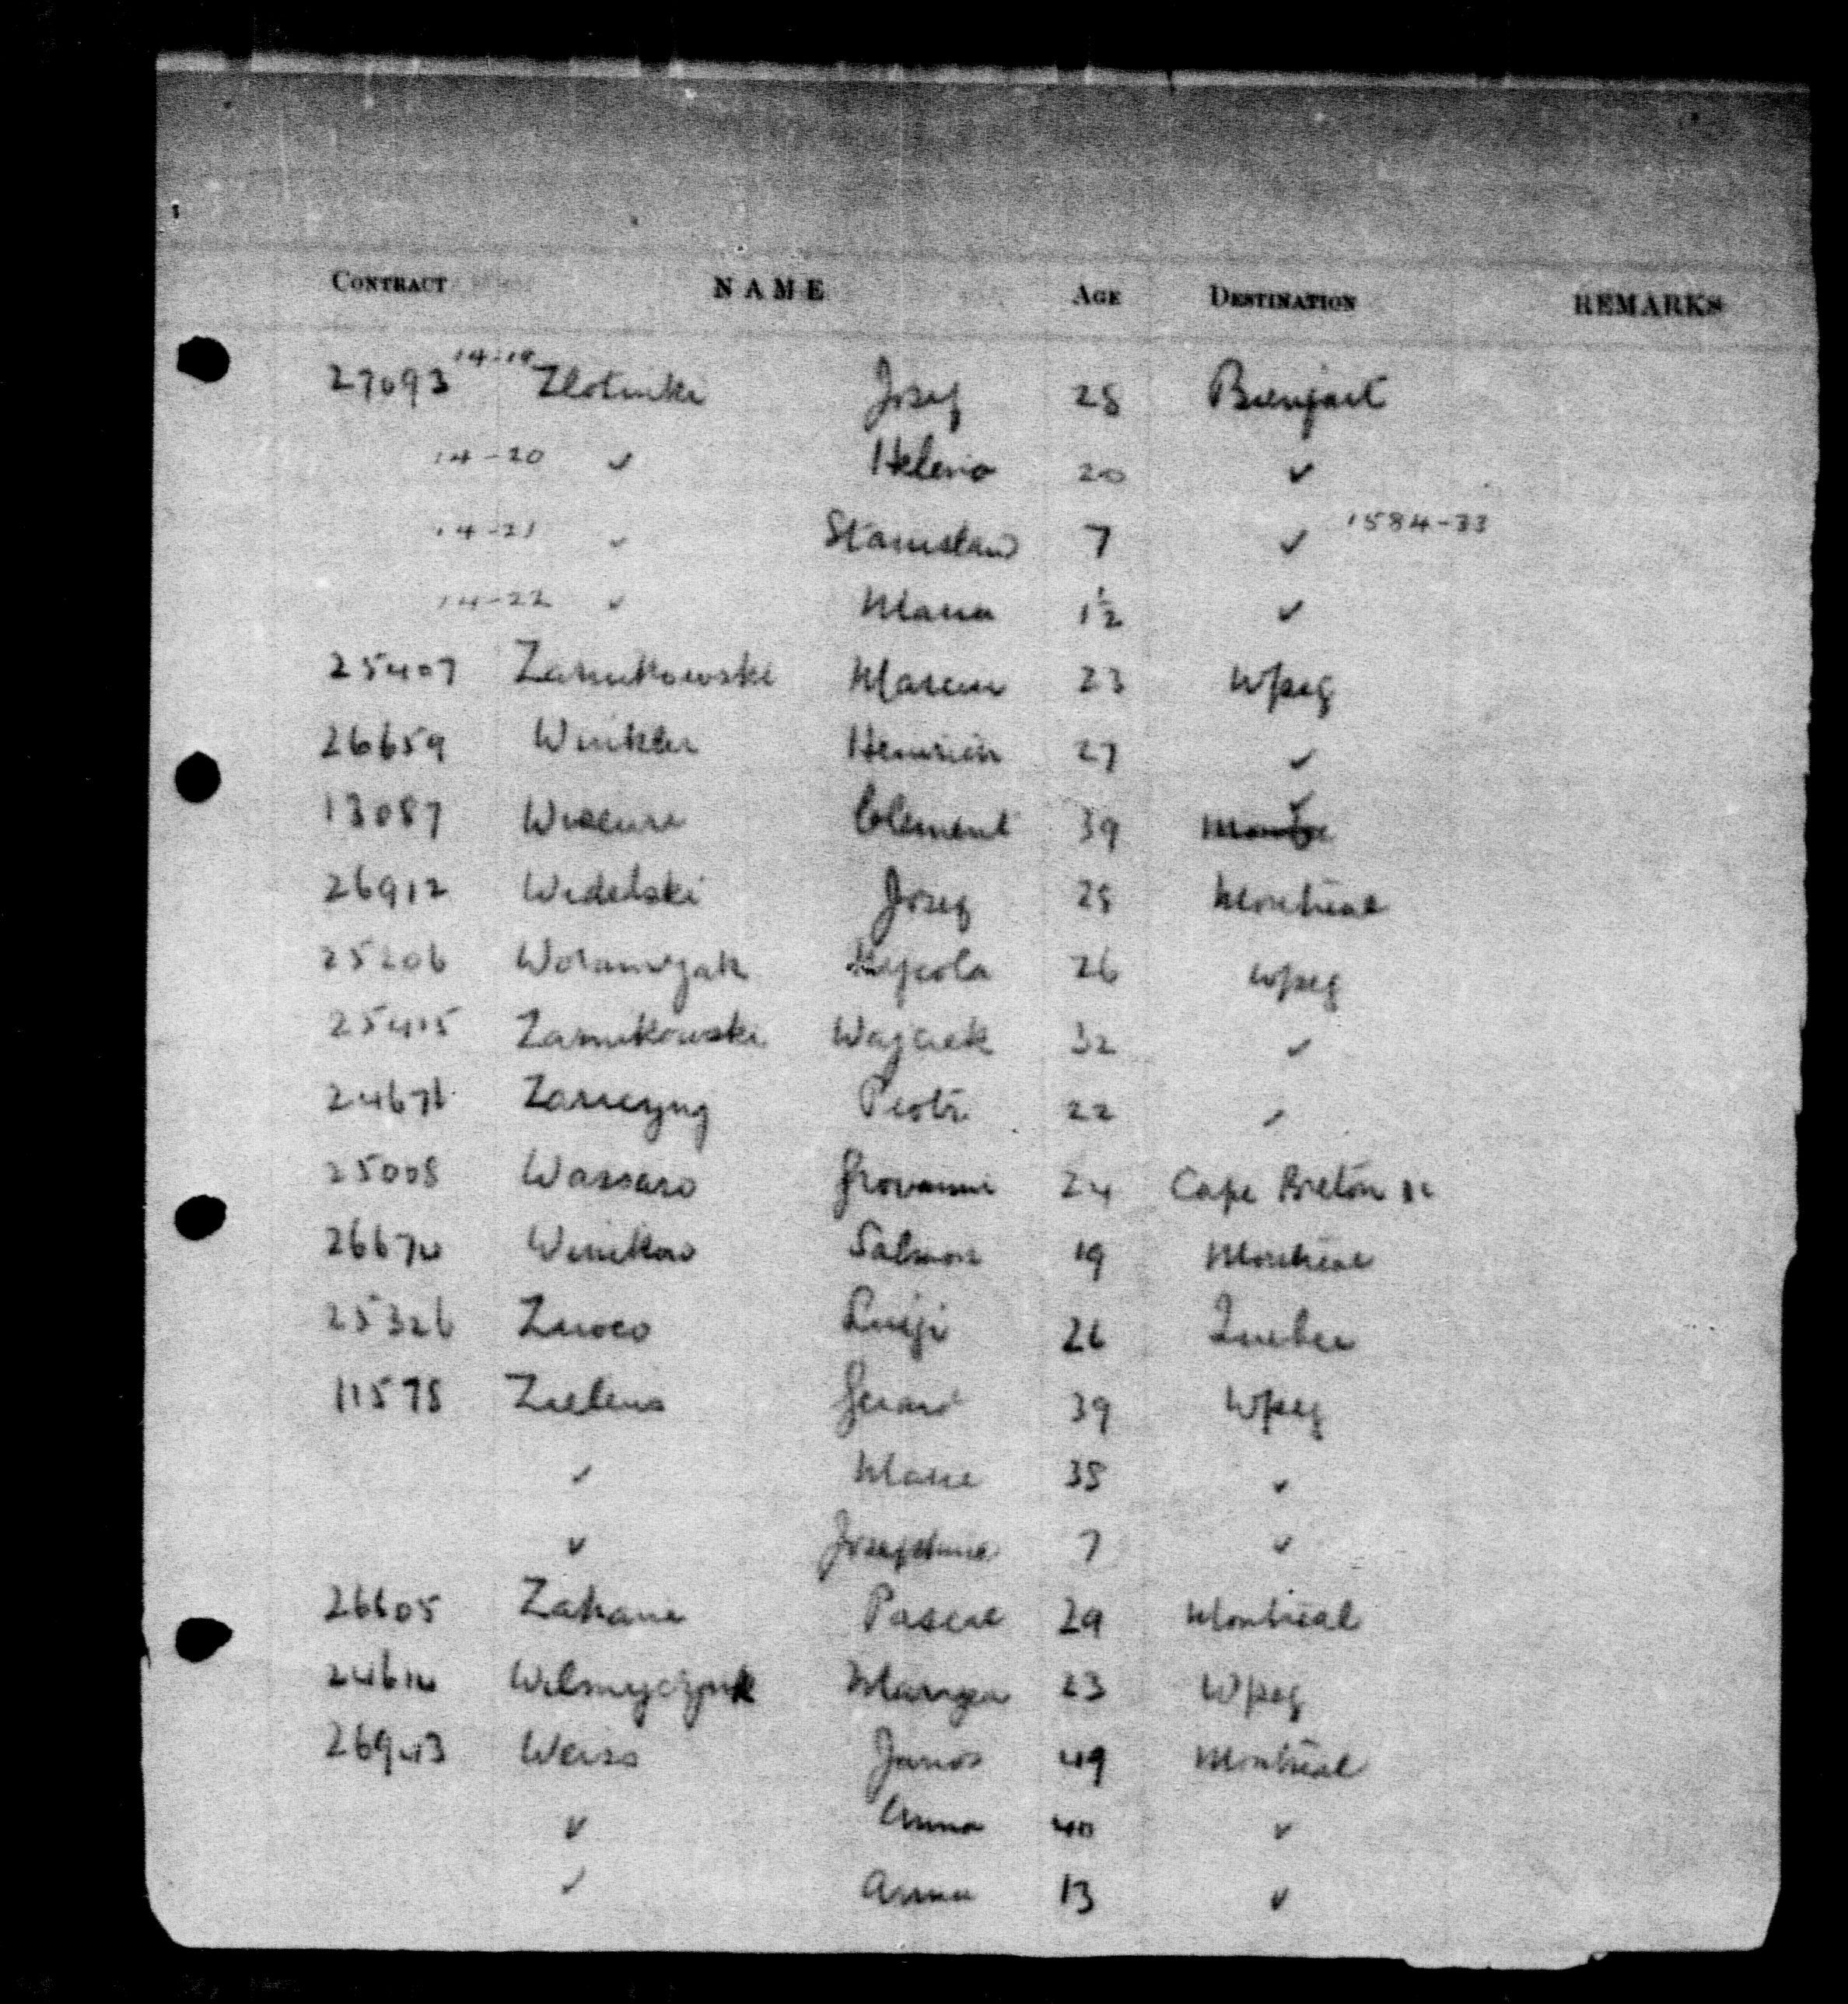 CONTRACT NAME AGE DESTINATION REMARKS
27093 14-19 Zlotniki Josef 28 Bienfait
14-20 ✓ Helena 20 ✓
14-21 ✓ Stanislaw 7 ✓ 1584-33
14-22 ✓ Maria 1½ ✓
25407 Zarnikowski Marcin 23 Wpeg
26659 Winkler Heinrich 27 ✓
13087 Clement 39 ✓
26912 Widelski Josef 28 Montreal
25206 26 Wpeg
25415 Zarnikowski Wojciek 32 ✓
24676 Piotr 22 ✓
25008 Wassaro Giovanni 24 Cape Breton
26674 Winikow Salmon 19 Montreal
25326 Luigi 26 Quebec
11578 Zielens Gerard 39 Wpeg
✓ Marie 35 ✓
✓ Josephine 7 ✓
26605 Zakane Pascal 29 Montreal
24614 23 Wpeg
26943 Weiss Janos 49 Montreal
✓ Anna 40 ✓
✓ Anna 13 ✓